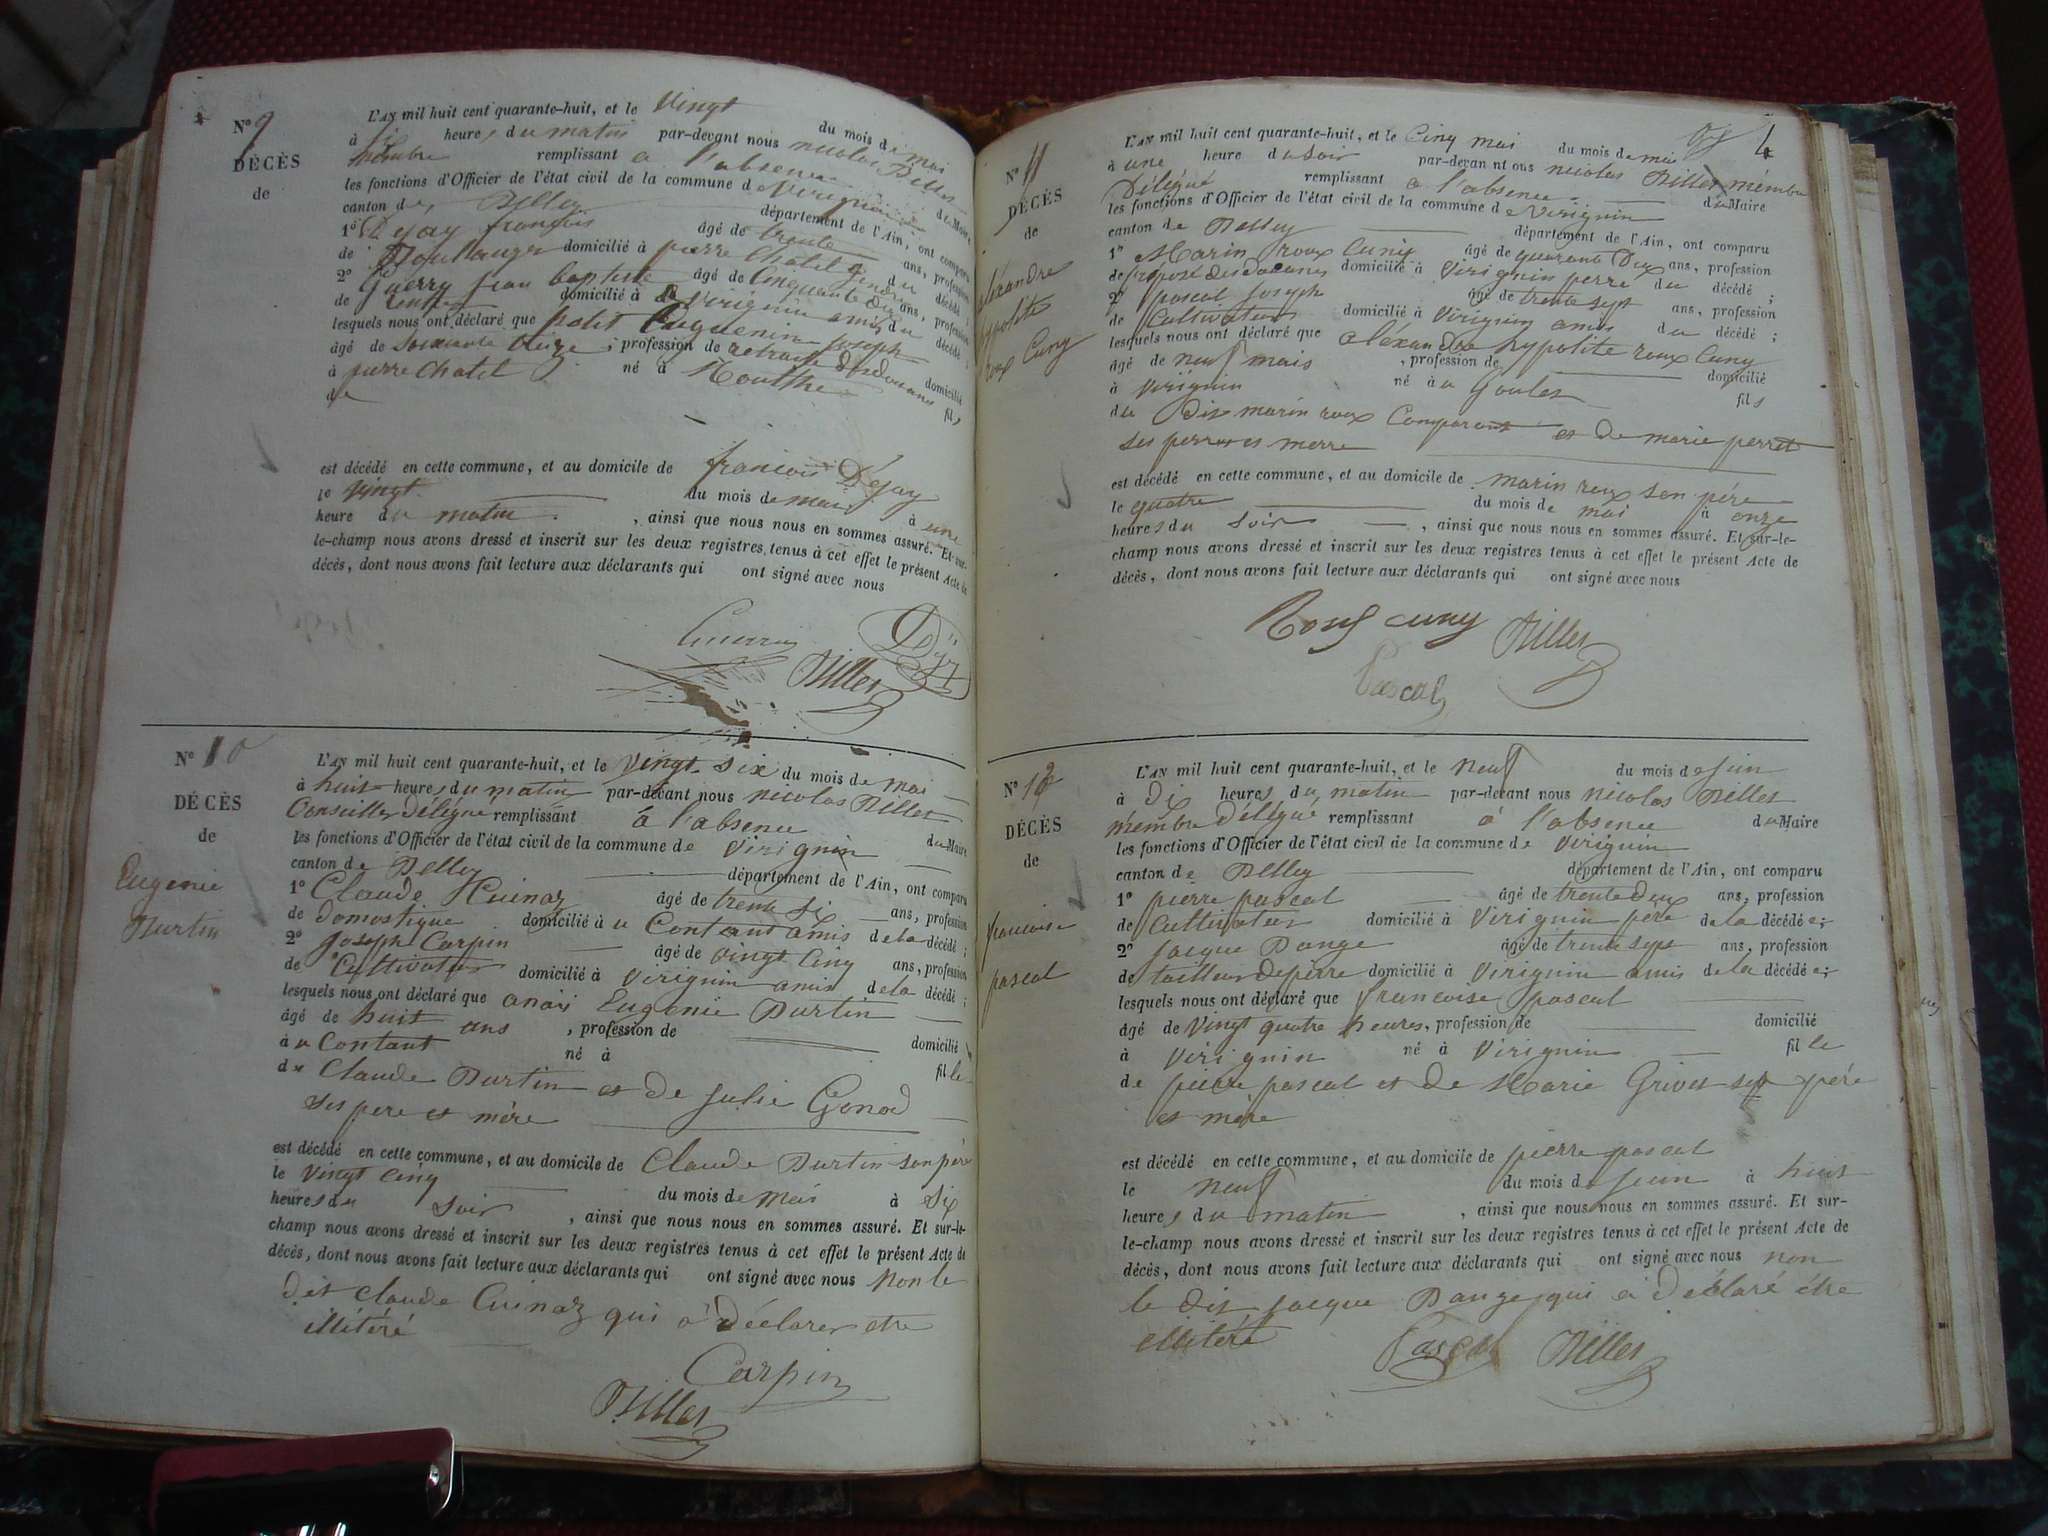 N° 9
DÉCÈS
de
L'AN mil huit cent quarante-huit, et le vingt du mois de mai
à heures du matin par-devant nous nicolas Billet
membre remplissant a l'absence du Maire
les fonctions d'Officier de l'état civil de la commune de virignin
canton de Belley département de l'Ain, ont comparu
1° Dejay françois âgé de trente ans, profession
de Boullanger domicilié à pierre Chatel gendre du décédé;
2° Guerry jean baptiste âgé de Cinquante ans, profession
de domicilié à virignin amis du décédé;
lesquels nous ont déclaré que petit huguenin joseph
âgé de Soixante , profession de retraité des douanes domicilié
à pierre Chatel né à Mouthe fils
de
est décédé en cette commune, et au domicile de francois Déjay
le vingt du mois de mai à une
heure du matin , ainsi que nous nous en sommes assuré. Et sur-
le-champ nous avons dressé et inscrit sur les deux registres tenus à cet effet le présent Acte de
décès, dont nous avons fait lecture aux déclarants qui ont signé avec nous
Guerry Billet
N° 10
DÉCÈS
de
Eugenie
Burtin
L'AN mil huit cent quarante-huit, et le vingt six du mois de mai
à huit heures du matin par-devant nous nicolas Billet
Conseiller Délégué remplissant à l'absence du Maire
les fonctions d'Officier de l'état civil de la commune de virignin
canton de Belley département de l'Ain, ont comparu
1° Claude Cuinaz âgé de trente six ans, profession
de domestique domicilié à u Contant amis de la décédé;
2° joseph Carpin âgé de vingt Cinq ans, profession
de Cultivateur domicilié à virignin amis de la décédé;
lesquels nous ont déclaré que anais Eugénie Burtin
âgé de huit ans , profession de domicilié
à u Contant né à fille
de Claude Burtin et de julie Genod
ses pere et mére
est décédé en cette commune, et au domicile de Claude Burtin son père
le vingt cinq du mois de mai à six
heures du soir , ainsi que nous nous en sommes assuré. Et sur-le-
champ nous avons dressé et inscrit sur les deux registres tenus à cet effet le présent Acte de
décès, dont nous avons fait lecture aux déclarants qui ont signé avec nous non le
dit claude Cuinaz qui a déclarer etre
illitéré
Carpin
Billet
4
N° 11
DÉCÈS
de
aléxandre
hypolite
roux Cuny
L'AN mil huit cent quarante-huit, et le Cinq mai du mois de mai
à une heure du soir par-devant nous nicolas Billet mémbre
Délégué remplissant a l'absence du Maire
les fonctions d'Officier de l'état civil de la commune de Virignin
canton de Belley département de l'Ain, ont comparu
1° Marin roux Cuny âgé de quarante Deux ans, profession
de préposé des douanes domicilié à virignin perre du décédé;
2° pascal joseph âgé de trente sept ans, profession
de Cultivateur domicilié à virignin amis du décédé;
lesquels nous ont déclaré que aléxandre hypolite roux Cuny
âgé de neuf mois , profession de domicilié
à virignin né à u Goulet fils
du Dit marin roux Comparant et de marie perret
ses perre et merre
est décédé en cette commune, et au domicile de marin roux son pére
le quatre du mois de mai à onze
heures du soir , ainsi que nous nous en sommes assuré. Et sur-le-
champ nous avons dressé et inscrit sur les deux registres tenus à cet effet le présent Acte de
décès, dont nous avons fait lecture aux déclarants qui ont signé avec nous
Roux cuny Billet
Pascal
N° 12
DÉCÈS
de
francoise
pascal
L'AN mil huit cent quarante-huit, et le neuf du mois de juin
à dix heures du matin par-devant nous nicolas Billet
mémbre Délégué remplissant à l'absence du Maire
les fonctions d'Officier de l'état civil de la commune de virignin
canton de Belley département de l'Ain, ont comparu
1° pierre pascal âgé de trente deux ans, profession
de Cultivateur domicilié à virignin père de la décédée;
2° jacque Dange âgé de trente sept ans, profession
de tailleur de pierre domicilié à virignin amis de la décédée;
lesquels nous ont déclaré que francoise pascal
âgé de vingt quatre heures, profession de domicilié
à virignin né à virignin fille
de pierre pascal et de Marie Grivet ses pére
et mère
est décédé en cette commune, et au domicile de pierre pascal
le neuf du mois de juin à huit
heures du matin , ainsi que nous nous en sommes assuré. Et sur-
le-champ nous avons dressé et inscrit sur les deux registres tenus à cet effet le présent Acte de
décès, dont nous avons fait lecture aux déclarants qui ont signé avec nous non
le dit jacque Dange qui a déclaré étre
illitéré
Pascal Billet